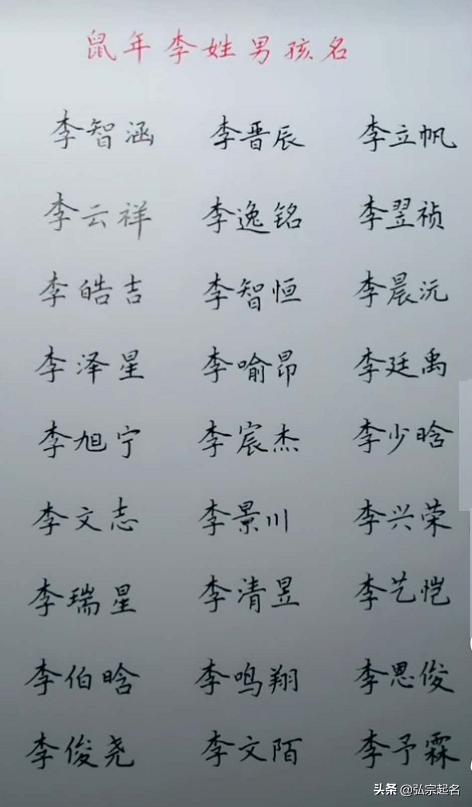 鼠年李姓男孩名
李智涵 李晋辰 李立帆
李云祥 李逸铭 李翌祯
李皓吉 李智恒 李晨沅
李泽星 李喻昂 李廷禹
李旭宁 李宸杰 李少晗
李文志 李景川 李兴荣
李瑞星 李清昱 李艺恺
李伯晗 李鸣翔 李思俊
李俊尧 李文陌 李予霖
头条 @弘宗起名